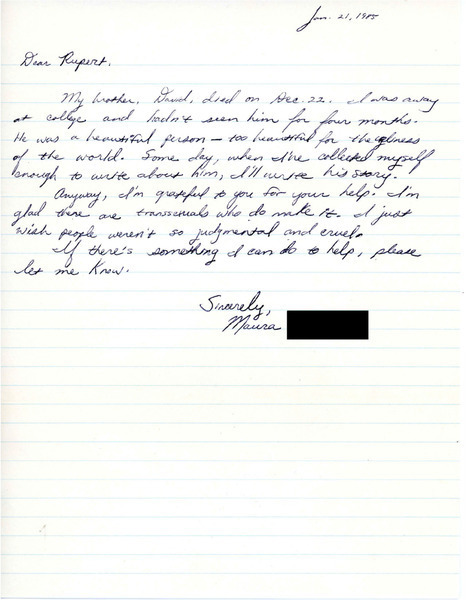 Jan. 21, 1985
Dear Rupert,
My brother, David, died on Dec. 22. I was away
at college and hadn't seen him for four months.
He was a beautiful person — too beautiful for the ugliness
of the world. Some day, when I've collected myself
enough to write about him, I'll write his story.
Anyway, I'm grateful to you for your help. I'm
glad there are transexuals who do make it. I just
wish people weren't so judgmental and cruel.
If there's something I can do to help, please
let me know.
Sincerely,
Maura